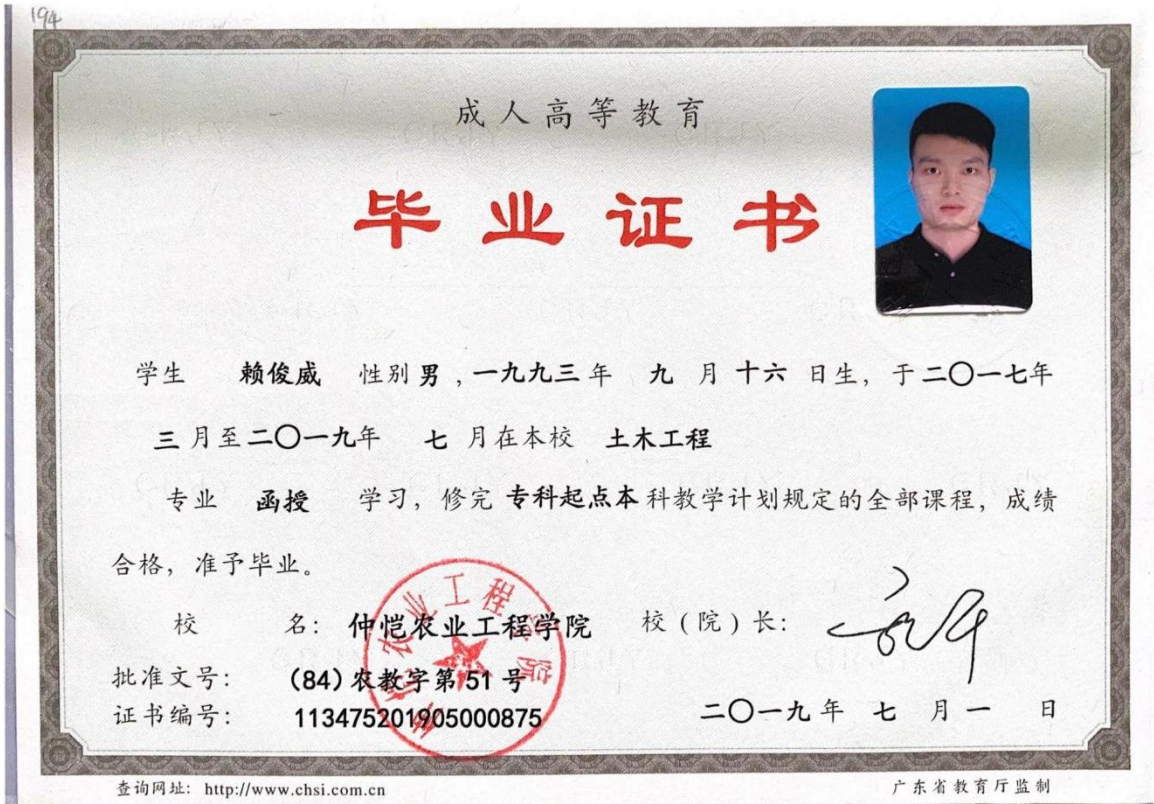 194
成人高等教育
毕业证书
学生 赖俊威 性别 男 , 一九九三 年 九 月 十六 日生, 于 二〇一七年
三 月至 二〇一九年 七 月在本校 土木工程
专业 函授 学习, 修完 专科起点本 科教学计划规定的全部课程, 成绩
合格, 准予毕业。
校 名: 仲恺农业工程学院 校(院)长:
批准文号: (84)农教字第 51 号
证书编号: 113475201905000875 二〇一九 年 七 月 一 日
仲恺农业工程学院
查询网址: http://www.chsi.com.cn 广东省教育厅监制